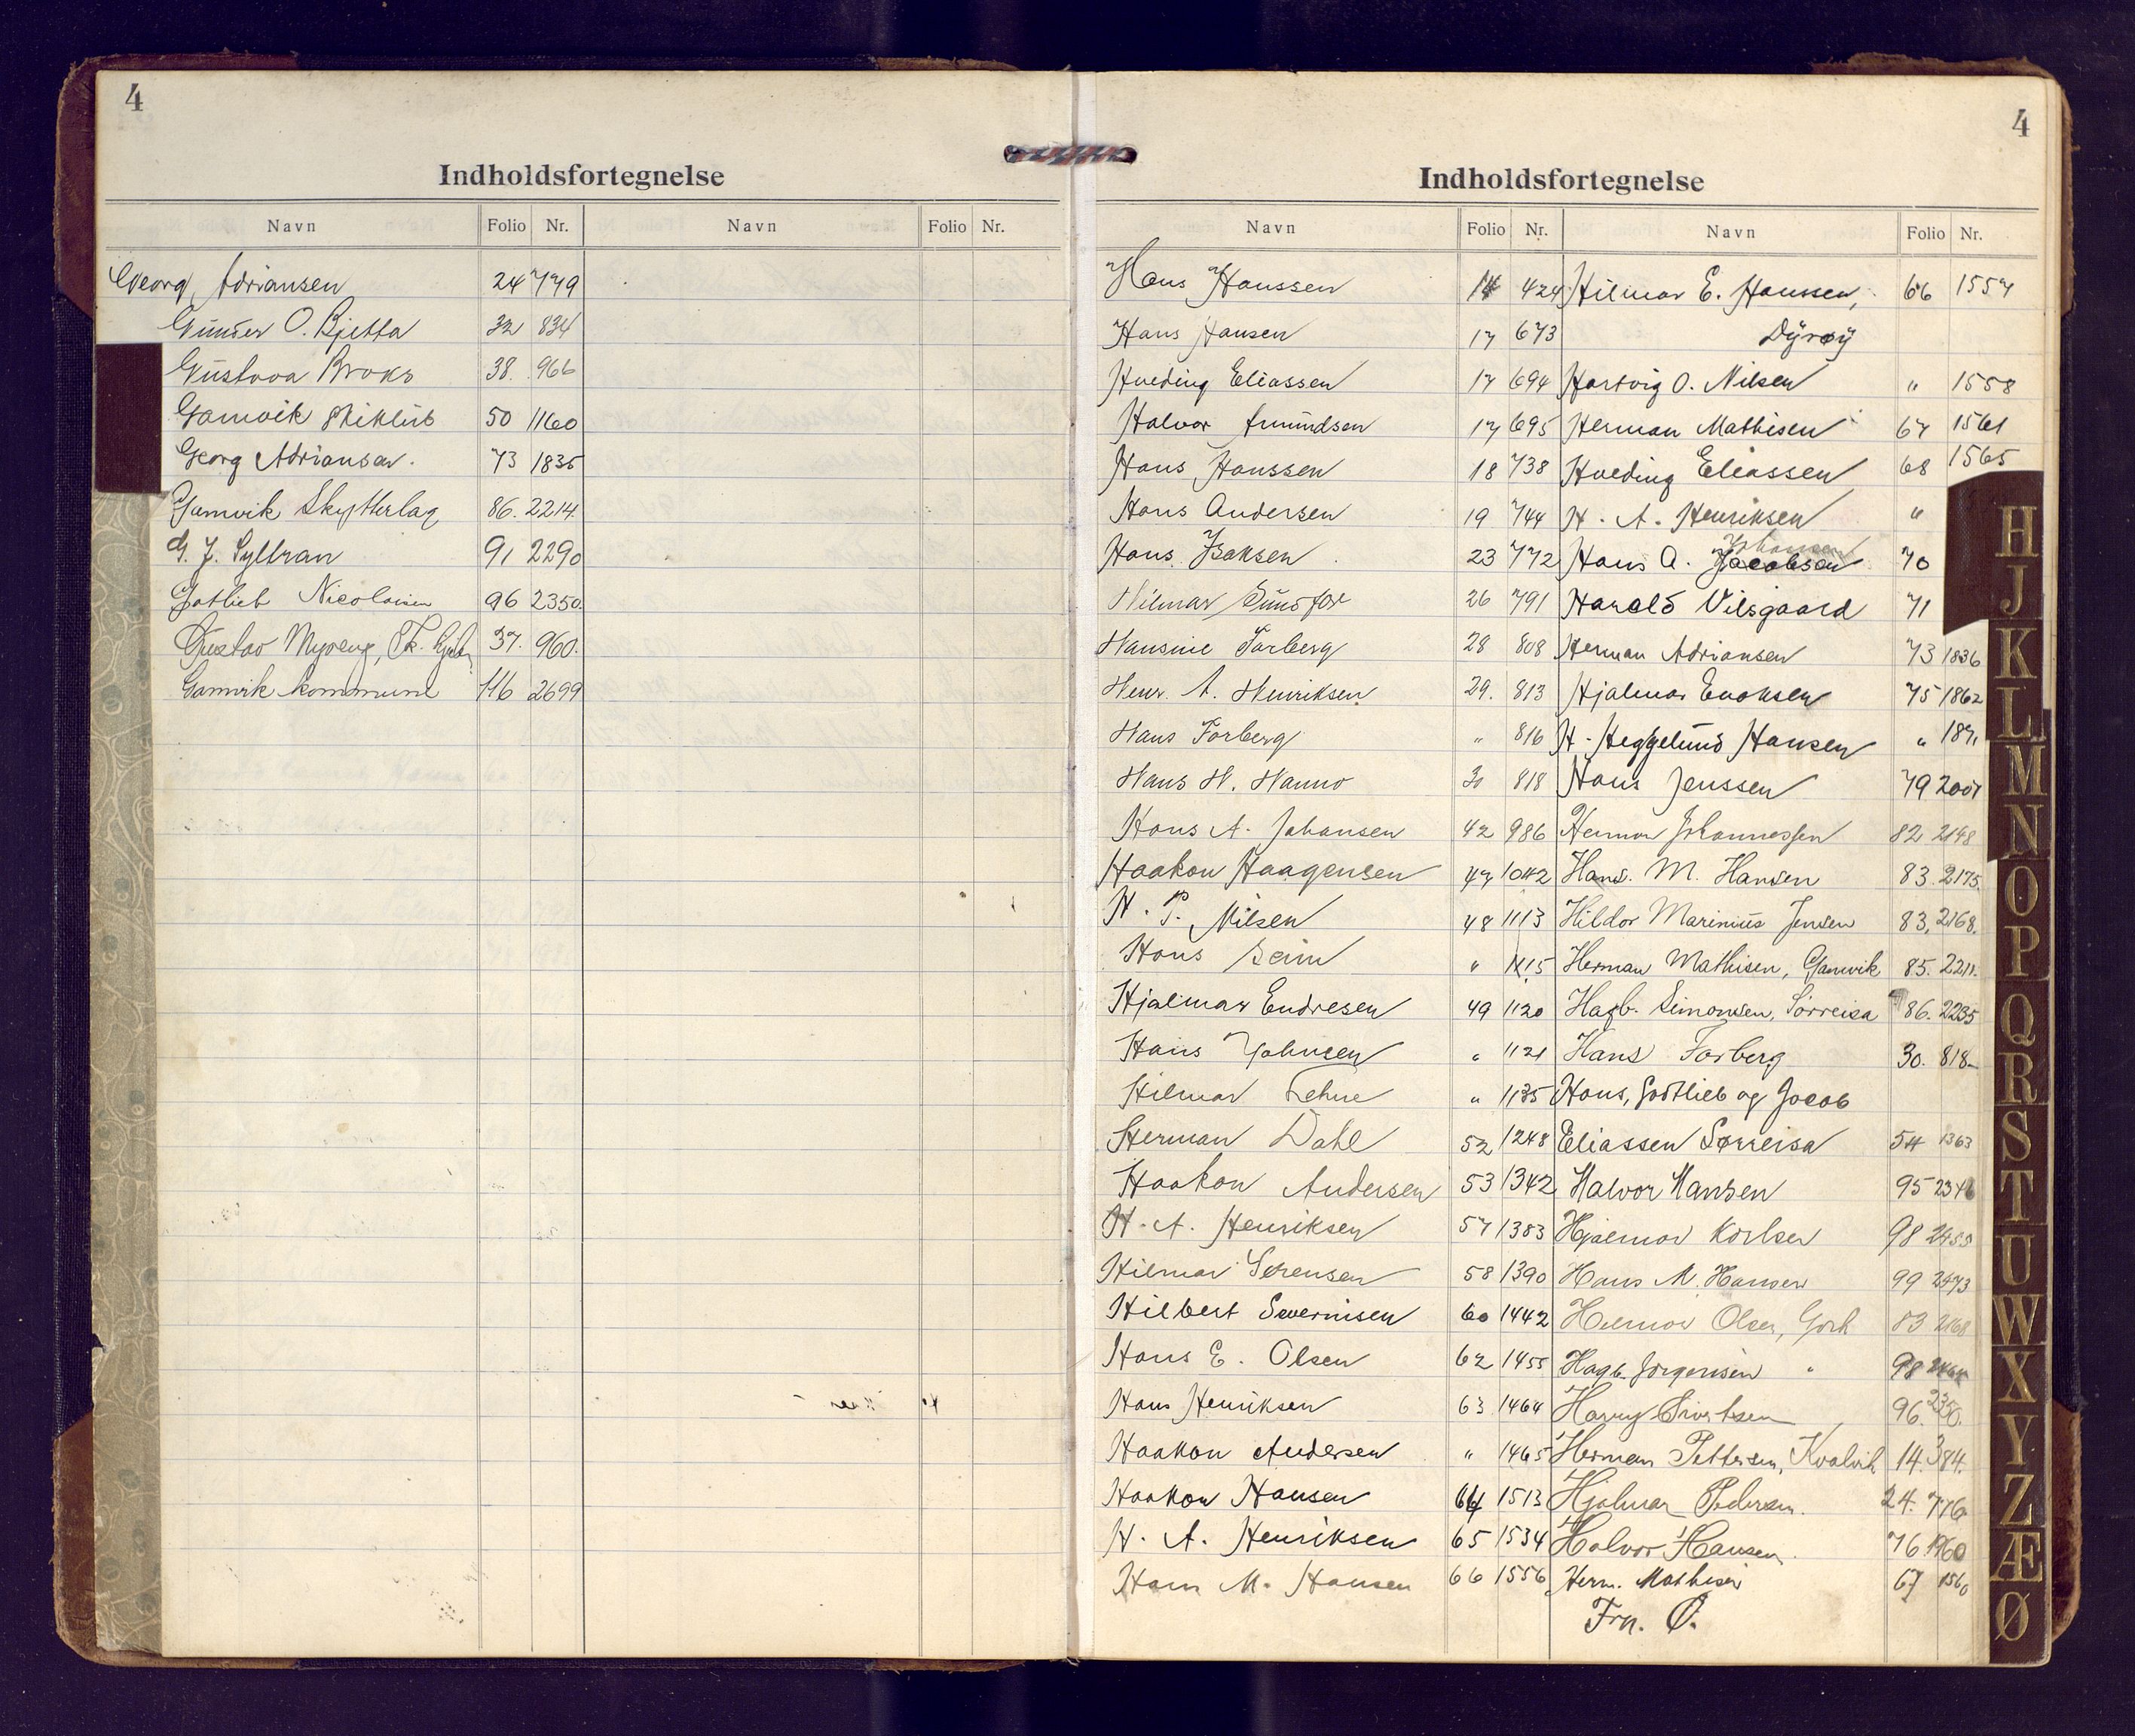 4
Indholdsfortegnelse
Navn Folio Nr. Navn Folio Nr.
Georg Adriansen 24 779
Gunder O. Bjetta 32 834
Gustava Broks 38. 966
Gamvik Skiklub 50 1160
Georg Adriansen. 73 1835
Gamvik Skytterlag 86. 2214.
G. J. Syltran 91 2290
Gotlieb Nicolaisen 96 2350.
Gustav Myreng, 37. 960.
Gamvik kommune 116 2699
4
Indholdsfortegnelse
Navn Folio Nr.
Hans Hanssen 14 424
Hans Hansen 17 673
Hveding Eliassen 17 694
Halvor Amundsen 17 695
Hans Hanssen 18 738
Hans Andersen 19 744
Hans Isaksen 23 772
Hilmar Sundfør 26 791
Hansine Farberg 28 808
Henr. A. Henriksen. 29. 813
Hans Farberg " 816
Hans H. Hanno 30 818
Hans A. Johansen 42 986
Haakon Haagensen 47 1042
H. P. Nilsen 48 1113
Hans Seim " 1115
Hjalmar Endresen 49 1120
Hans Johnsen " 1121
Hilmar Lehne " 1135
Herman Dahl 52 1248
Haakon Andersen 53 1342
H. A. Henriksen 57 1383
Hilmar Sørensen 58 1390
Hilbert Severinsen 60 1442
Hans E. Olsen 62 1455
Hans Henriksen 63 1464
Haakon Andersen " 1465
Haakon Hansen 64 1513
H. A. Henriksen 65 1534
Hans M. Hansen 66 1556
Navn Folio Nr.
Hilmar E. Hanssen, 66 1557
Dyrøy
Hartvig O. Nilsen " 1558
Herman Mathisen 67 1561
Hveding Eliassen 68 1565
H. A. Henriksen "
Johansen
Hans A. Jacobsen 70
Harald Vilsgaard 71
Herman Adriansen 73 1836
Hjalmar Enoksen 75 1862
H. Heggelund Hansen " 1871
Hans Jenssen 79 2007
Herman Johannessen 82 2148
Hans. M. Hansen 83. 2175.
Hildor Marinius Jensen 83. 2168.
Herman Mathisen, Gamvik 85. 2211.
Hagb. Simonsen, Sörreisa 86. 2235
Hans Farberg 30. 818
Hans, Gottlieb og Jacob
Eliassen Sørreisa 54 1363
Halvor Hansen 95 2346
Hjalmar Karlsen 98 2455
Hans M. Hansen 99 2473
Hilmar Olsen, 83 2168
Hagb. Jörgensen " 98
Harry Sivertsen 96. 2350.
Herman Pettersen, Kvalvik 14. 384.
Hjalmar Pedersen. 24. 776
Halvor Hansen. 76 1960
Herm. Mathisen 67 1560
Frn. Ø.
H
J
K
L
M
N
O
P
Q
R
S
T
U
W
X
Y
Z
Æ
Ø